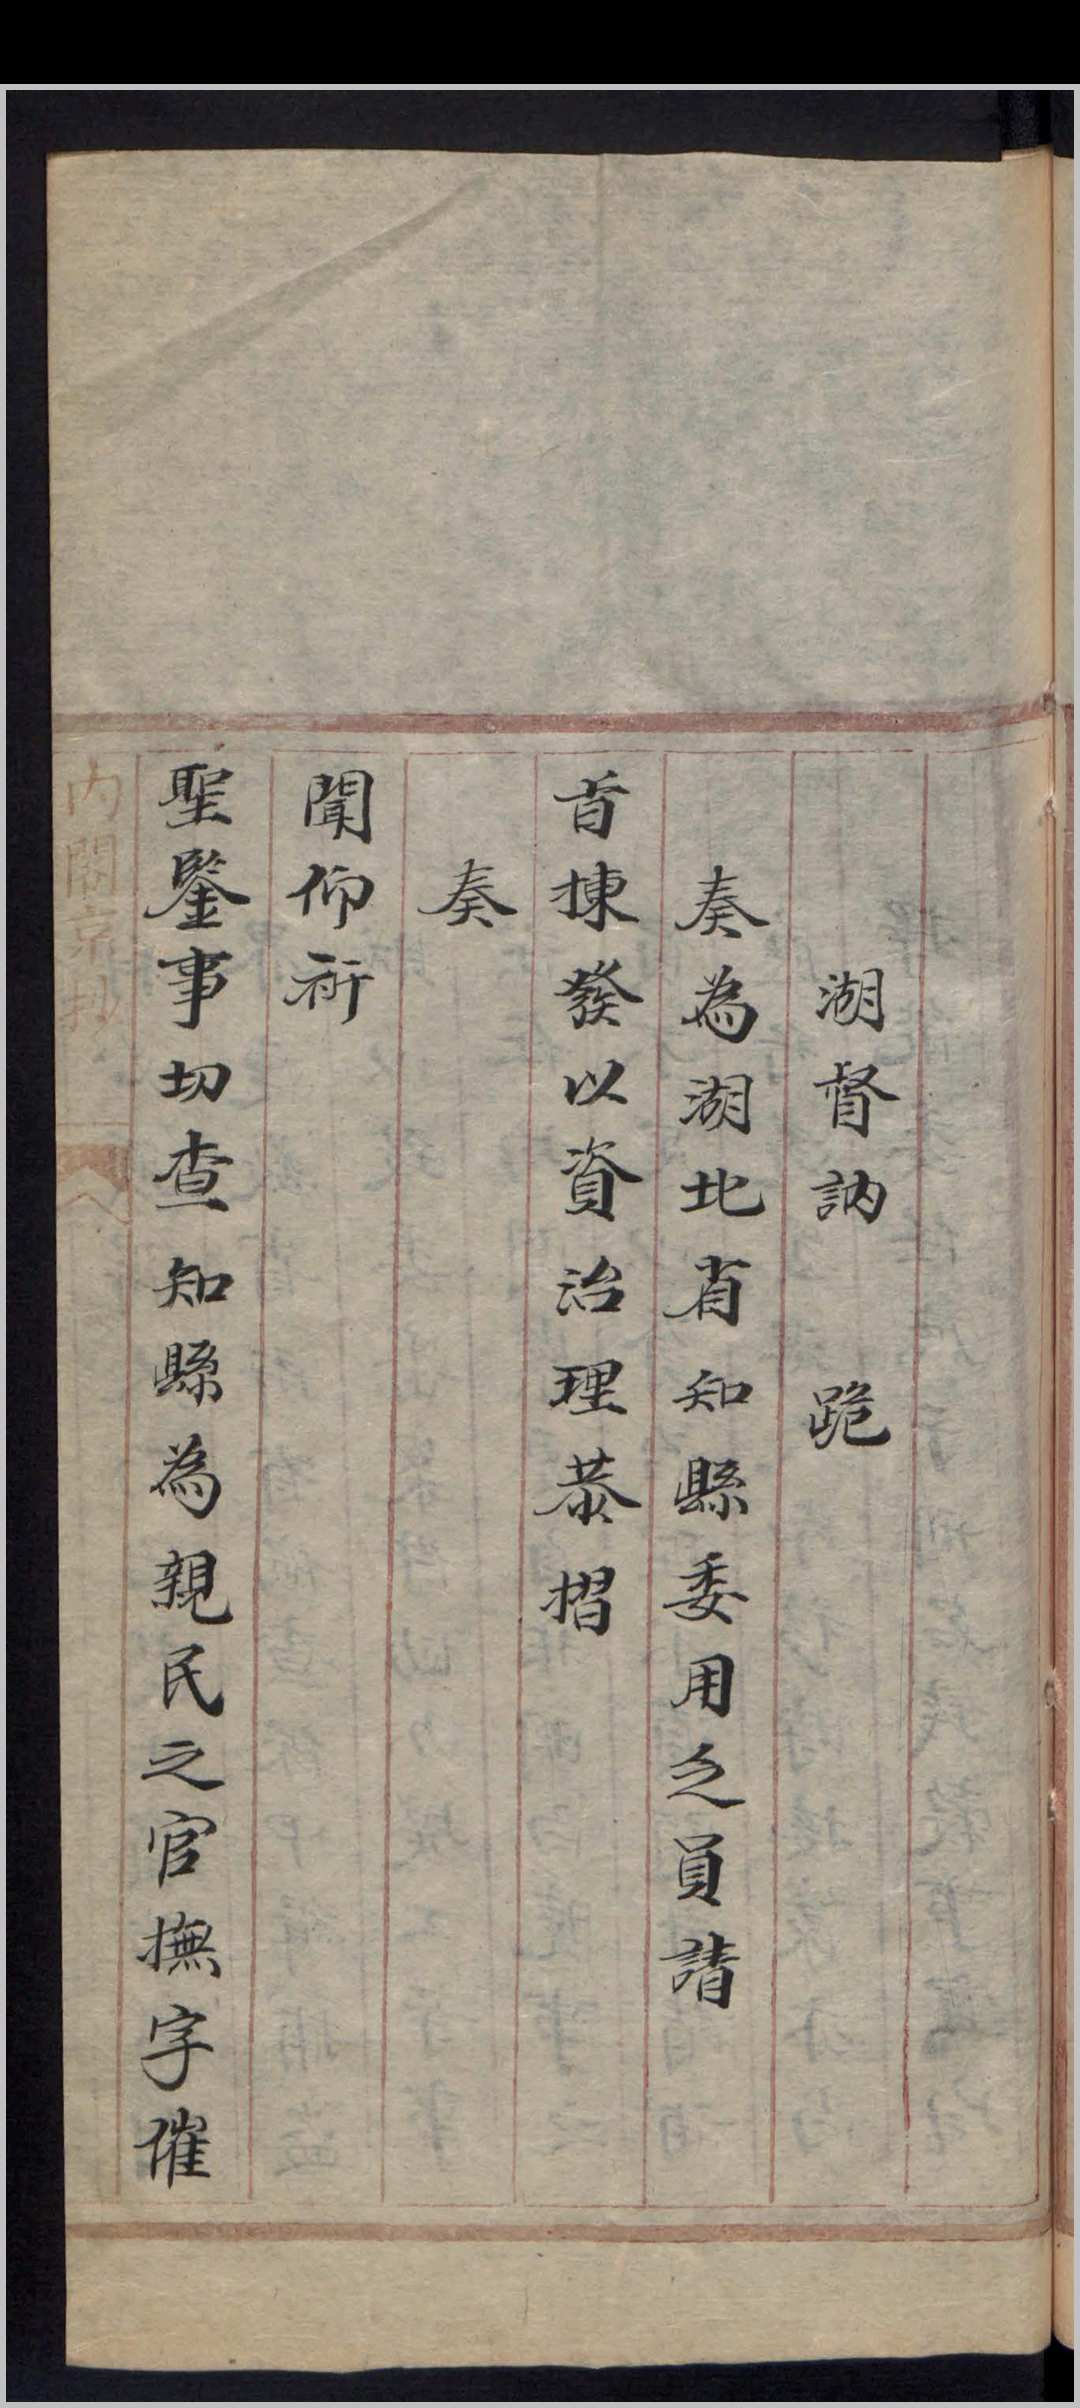 湖督訥　跪
奏為湖北省知縣委用乏員請
旨揀發以資治理恭摺
奏
聞仰祈
聖鑒事切查知縣為親民之官撫字催
內閣京抄